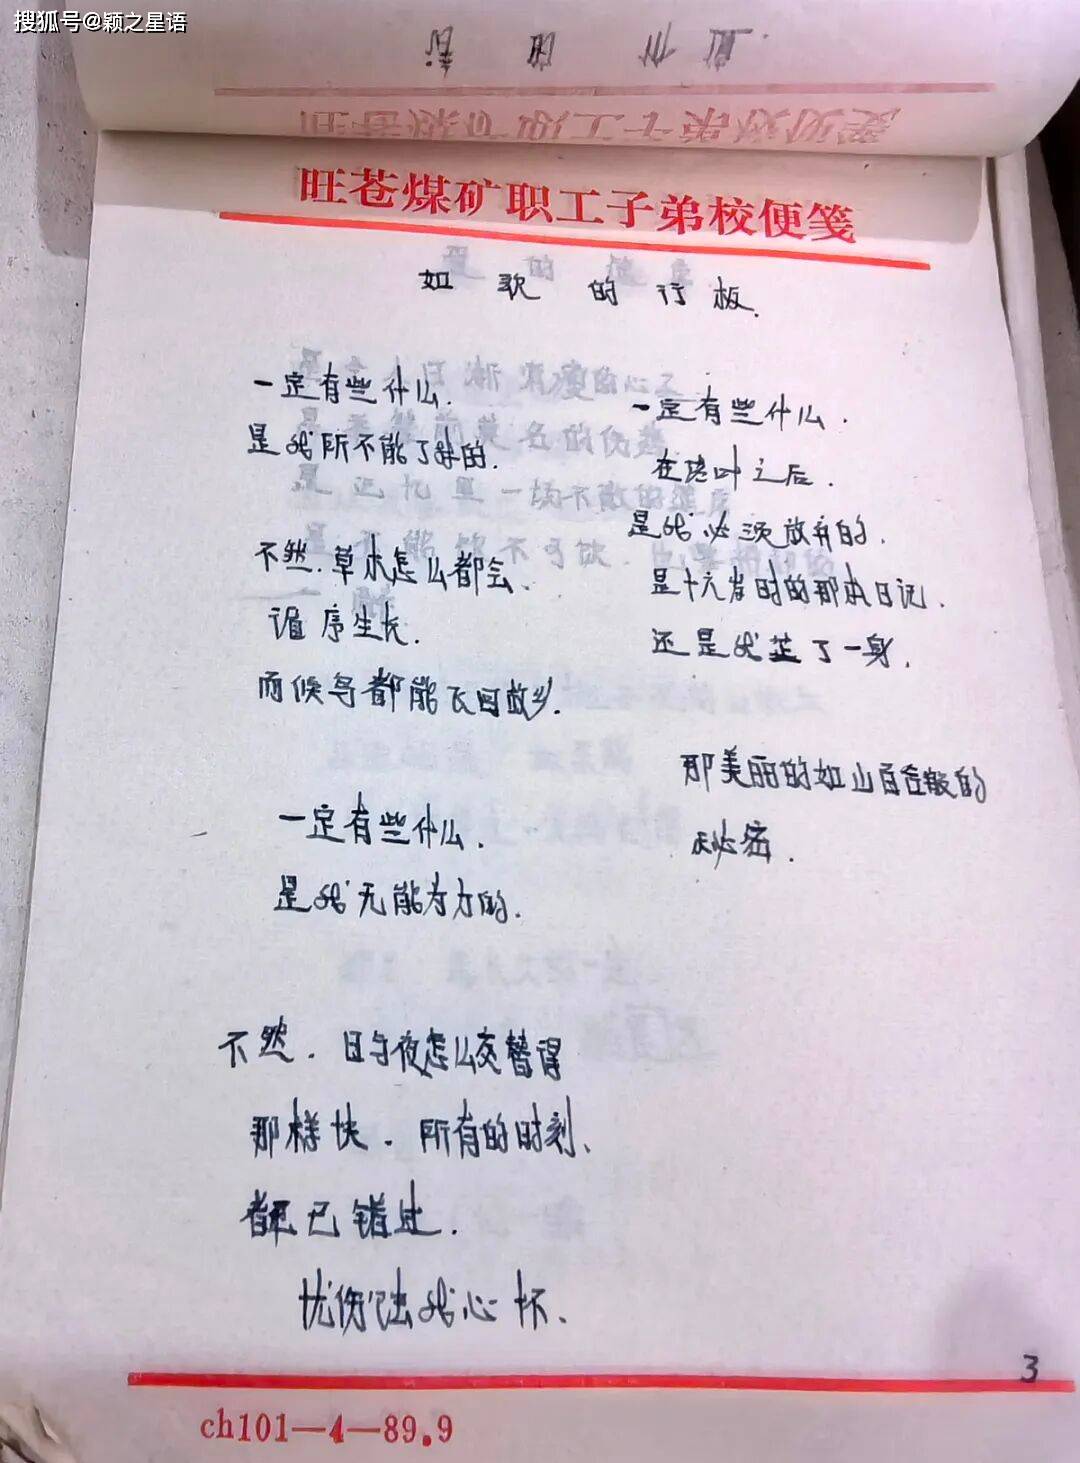 搜狐号@颖之星语
旺苍煤矿职工子弟校便笺
如歌的行板.
一定有些什么.
是我所不能了解的.
不然.草木怎么都会.
循序生长.
而候鸟都能飞回故乡.
一定有些什么.
是我无能为力的.
不然.日与夜怎么交替得
那样快.所有的时刻、
都已错过.
忧伤蚀我心怀、
一定有些什么.
在落叶之后.
是我必须放弃的.
是十六岁时的那本日记.
还是我藏了一身.
那美丽的如山百合般的
秘密.
3
ch101—4—89.9